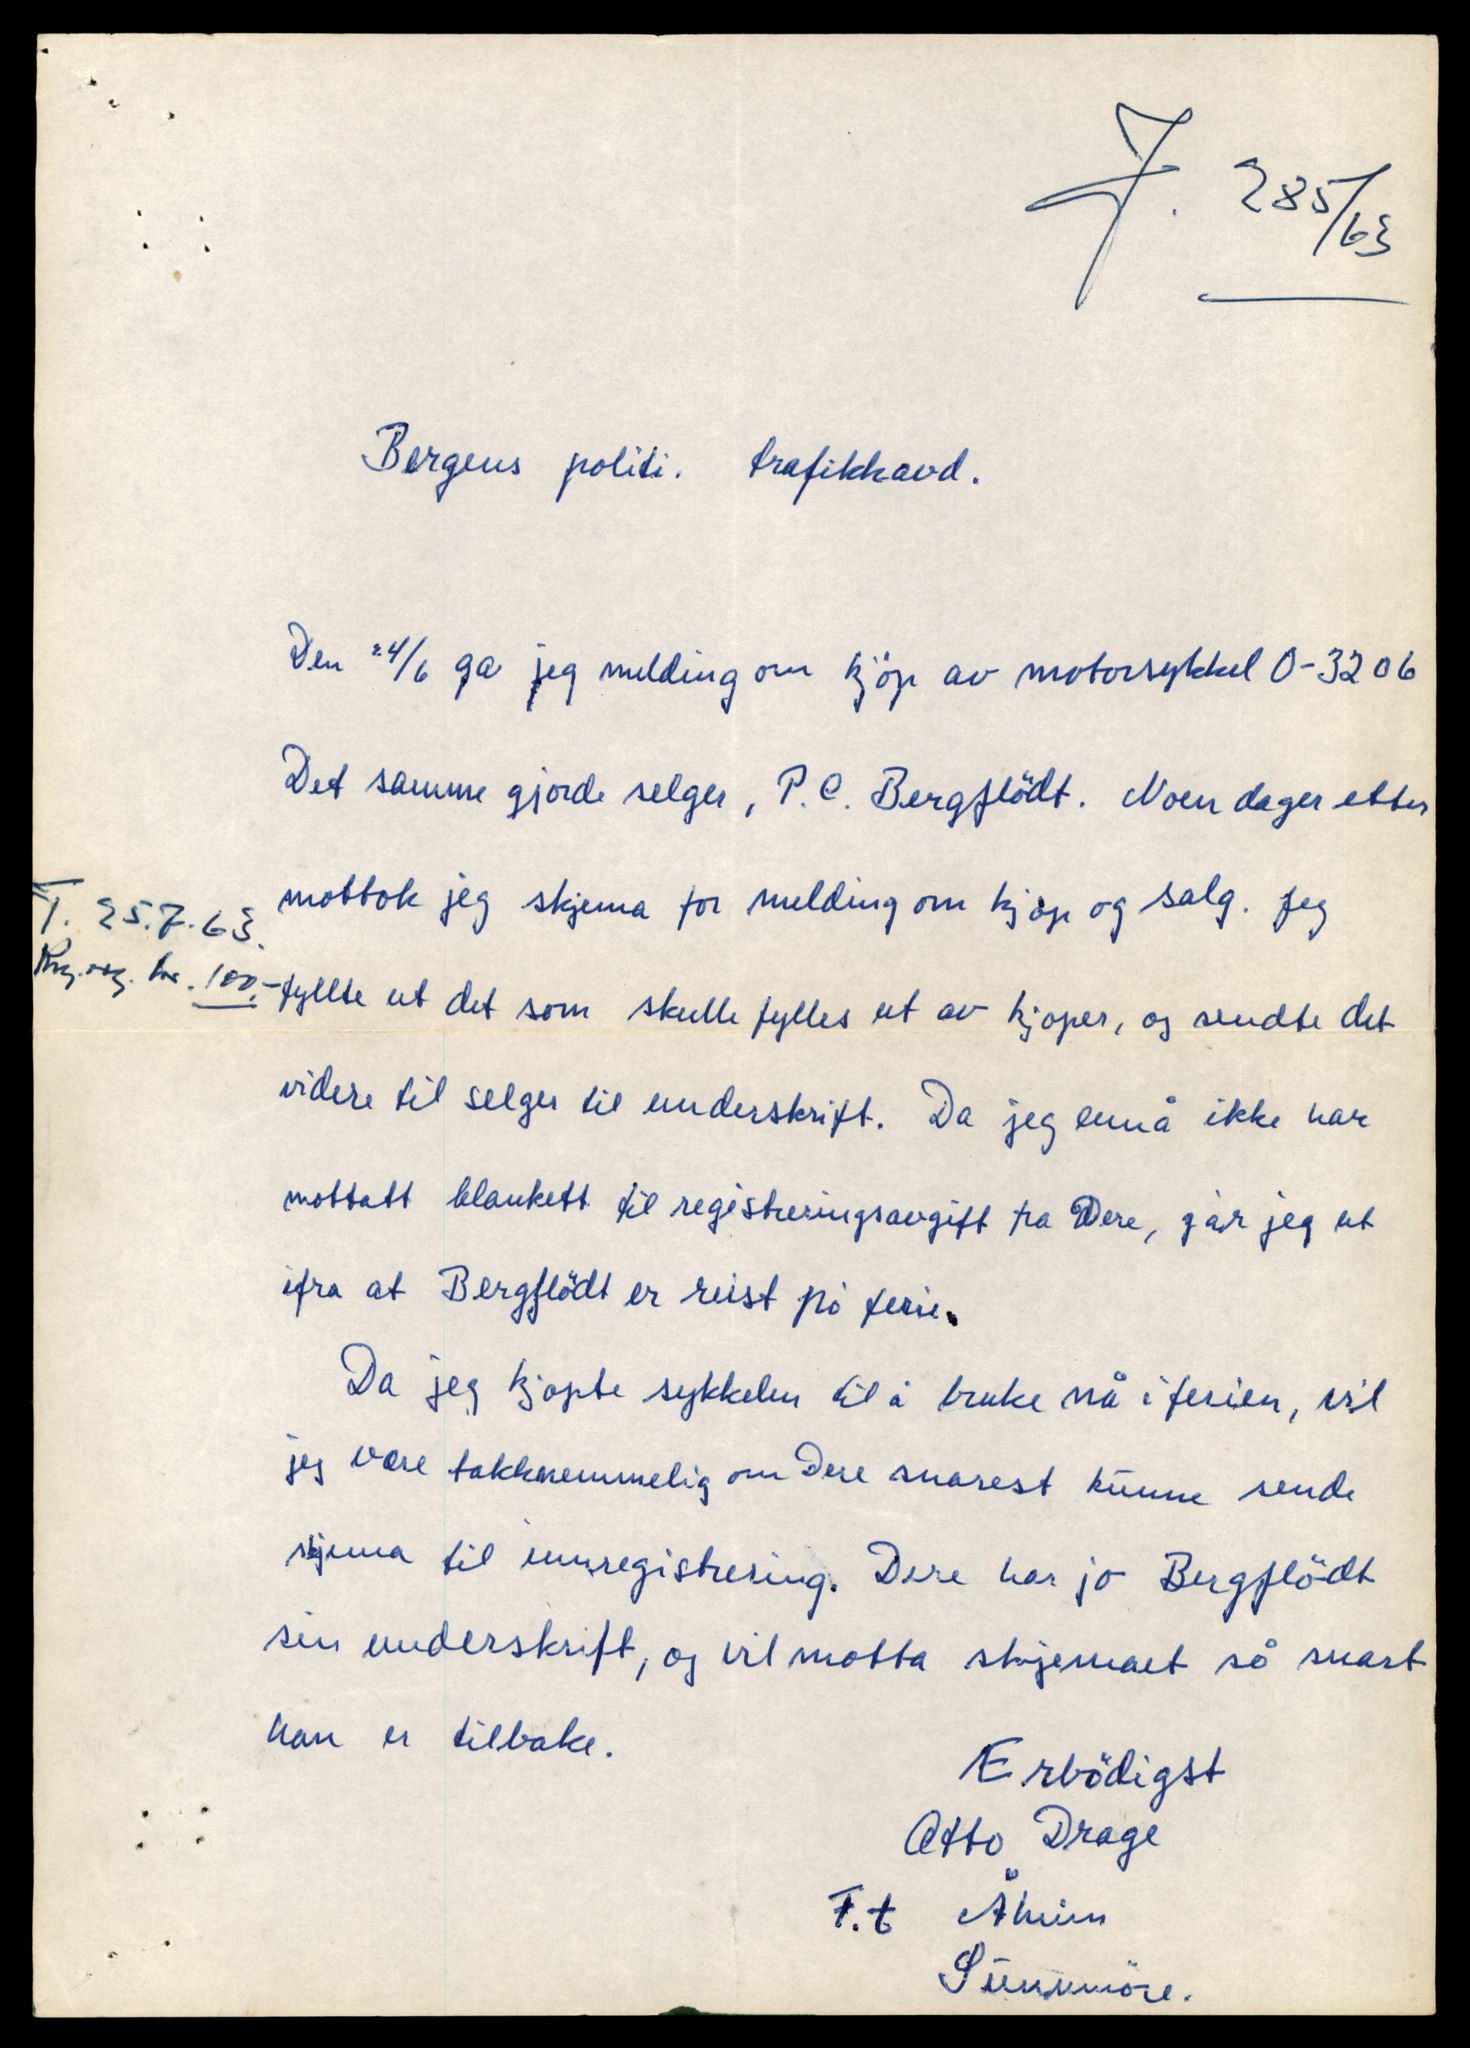 J. 285/63
Bergens politi. trafikkavd.
Den 24/6 ga jeg melding om kjöp av motorsykkel O-3206
Det samme gjorde selger, P.C. Bergflödt. Noen dager etter
mottok jeg skjema for melding om kjøp og salg. Jeg
T. 25.7.63.
kr. 100,-
fyllte ut det som skulle fylles ut av kjøper, og sendte det
videre til selger til underskrift. Da jeg ennå ikke har
mottatt blankett til registreringsavgift fra Dere, går jeg ut
ifra at Bergflödt er reist på ferie.
Da jeg kjøpte sykkelen til å bruke nå i ferien, vil
jeg være takknemmelig om Dere snarest kunne sende
skjema til innregistrering. Dere har jo Bergflödt
sin underskrift, og vil motta skjemaet så snart
han er tilbake.
Erbödigst
Otto Drage
F.t Åheim
Sunnmöre.